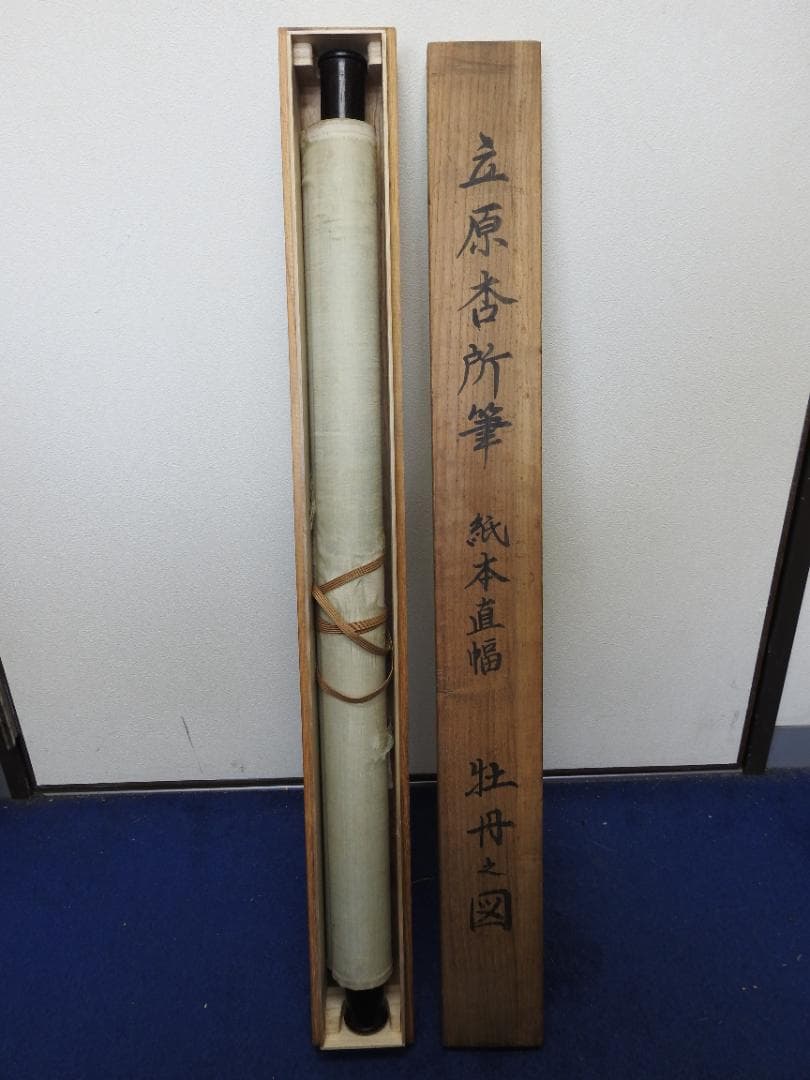 立原杏所筆 紙本直幅 牡丹之図